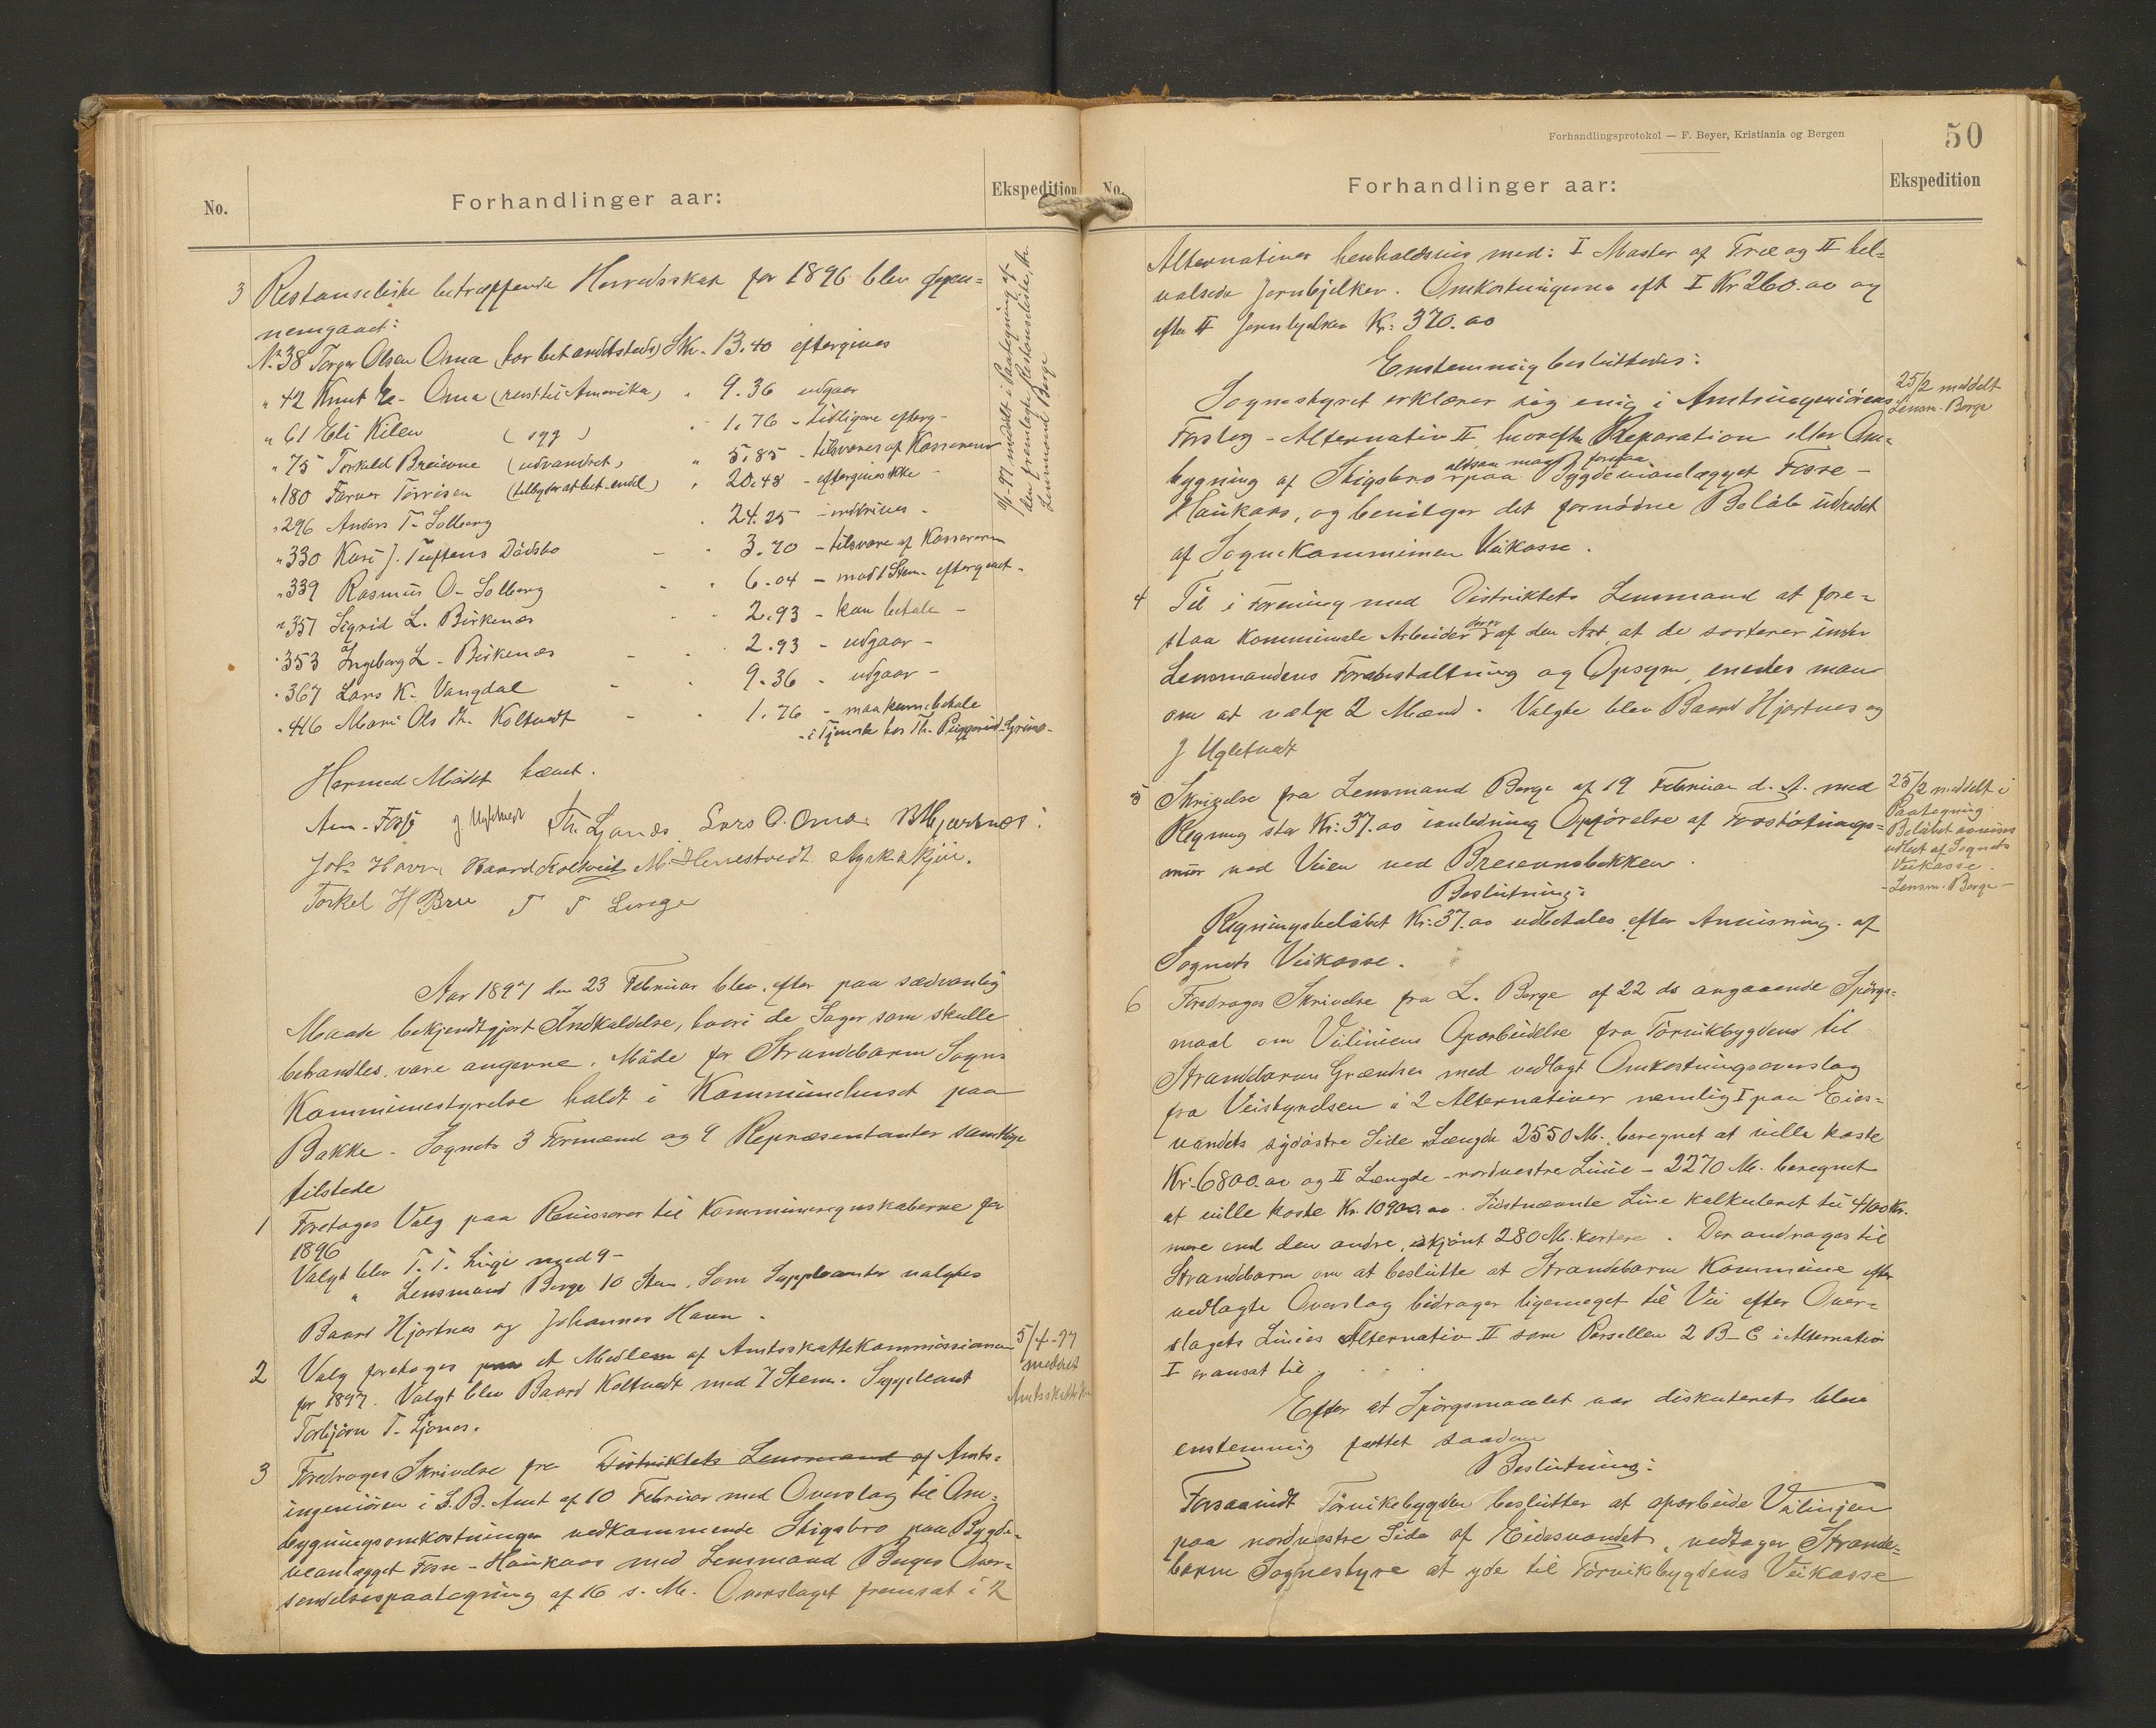 No.
Forhandlinger aar:
Ekspedition
3 Restanseliste betræffende Herredsskat for 1896 blev gjen-
nemgaaet:
No 38 Torger Olsen Oma (har bet andetsteds) Skr. 13.40 eftergives
" 42 Knut E. Oma (reist til Amerika) " 9.36 udgaar
" 61 Eli Kilen (syg) " 1.76 - tidligere efterg-
" 75 Torkild Breievne (udvandret) " 5.85 - tilsvares af Kassereren
" 180 Farver Tørrisen (tilbyder at bet. endel) " 20.48 - eftergives ikke -
" 296 Anders T. Solberg " 24.25 - inddrives -
" 330 Kari J. Tuftens Dödsbo - " 3.70 - tilsvare af Kassereren
" 339 Rasmus O. Solberg - " 6.04 - mod 1 Stem. eftergivet -
" 351 Sigrid L. Birkenes - " 2.93 - kan betale -
" 353 Ingeborg L. Birkenes - " 2.93 - udgaar -
" 367 Lars K. Vangdal - " 9.36 - udgaar -
" 446 Mari Ols dt. Koltvedt - " 1.76 - maa kunne betale
- i Tjeneste hos Th.
/1-97 meddelt i Paategning af
den fremlagte Restanseliste, hr.
Lensmand Berge
Hermed Mödet hævet.
Am. Fosse J Ugletvedt Th. Ljones Lars O. Oma B Hjartnes
Johs Havn Baard Koltveit M Herrestvedt
Torkel H Bru T T Linge
Aar 1897 den 23 Februar blev, efter paa sædvanlig
Maade bekjendtgjort Indkaldelse, hvori de Sager som skulle
behandles, vare angivne, Möde for Strandebarm Sogns
Kommunestyrelse holdt i Kommunehuset paa
Bakke. Sognets 3 Formænd og 9 Repræsentanter samtlige
tilstede
1 Foretages Valg paa Revisorer til Kommuneregnskaberne for
1896
Valgt blev T. T. Linge med 9 -
" Lensmand Berge 10 Stem. Som Suppleanter valgtes
Baard Hjartnes og Johannes Havn.
2 Valg foretages paa et Medlem af Amtsskattekommissionen
for 1897. Valgt blev Baard Koltvedt med 7 Stem. Suppleant
Torbjörn T. Ljones.
5/4-97
meddelt
3 Foredrages Skrivelse fra Distriktets Lensmand af Amts-
ingeniören i S. B. Amt af 10 Februar med Overslag til Om-
bygningsomkostninger vedkommende Stigsbro paa Bygde-
veanlægget Fosse - Haukaas med Lensmand Berges Over-
sendelsespaategning af 16 s. M. Overslaget fremsat i 2
Forhandlingsprotokol — F. Beyer, Kristiania og Bergen
50
No.
Forhandlinger aar:
Ekspedition
Alternativer henholdsvis med: I Master af Træ og II hel-
valsede Jernbjelker. Omkostningerne eft I Kr 260.00 og
efter II Jernbjelker Kr: 370.00
Enstemmig besluttedes:
Sognestyret erklærer sig enig i Amtsingeniörens
Forslag - Alternativ II, hvorefter Reparation eller Om-
bygning af Stigsbro altsaa maa foregaa paa Bygdeveianlægget Fosse -
Haukaas, og bevilger det fornödne Belöb udredet
af Sognekommunen Veikasse.
25/2 meddelt
Lensm. Berge
4 Til i Forening med Distriktets Lensmand at fore-
staa kommunale Arbeider der er af den Art, at de sorterer under
Lensmandens Foranstaltning og Opsyn, enedes man
om at vælge 2 Mænd. Valgte blev Baard Hjartnes og
J Ugletvedt
5 Skrivelse fra Lensmand Berge af 19 Februar d. A. med
Regning stor Kr: 37.00 i anledning Opförelse af Forstötnings-
mur ved Veien ved Breievnsbakken.
Beslutning:
Regningsbelöbet Kr: 37.00 udbetales efter Anvisning af
Sognets Veikasse.
25/2 meddelt i
Paategning.
Belöbet anvises
udbet af Sognets
Veikasse.
- Lensm. Berge -
6 Foredrages Skrivelse fra L. Berge af 22 ds angaaende Spörgs-
maal om Veiliniens Oparbeidelse fra Törvikbygdens til
Strandebarms Grændser med vedlagt Omkostningsoverslag
fra Veistyrelsen i 2 Alternativer nemlig I paa Eies-
vandets sydöstre Side Længde 2550 M. beregnet at ville koste
Kr. 6800.00 og II Længde - nordvestre Linie - 2270 M. beregnet
at ville koste Kr. 10900.00. Sidstnævnte Linie kalkuleret til 4100 Kr.
mere end den andre, skjönt 280 M. kortere. Der andrages til
Strandebarm om at beslutte at Strandebarm Kommune efter
vedlagte Overslag bidrager ligemeget til Vei efter Over-
slagets Linies Alternativ II som Parsellen 2 B-C i Alternativ
I er ansat til.
Efter at Spörgsmaalet var diskuteret blev
enstemmig fattet saadan
Beslutning:
Forsaavidt Törvikebygden beslutter at oparbeide Veilinjen
paa nordvestre Side af Eidesvandet, vedtager Strande-
barm Sognestyre at yde til Törvikbygdens Veikasse